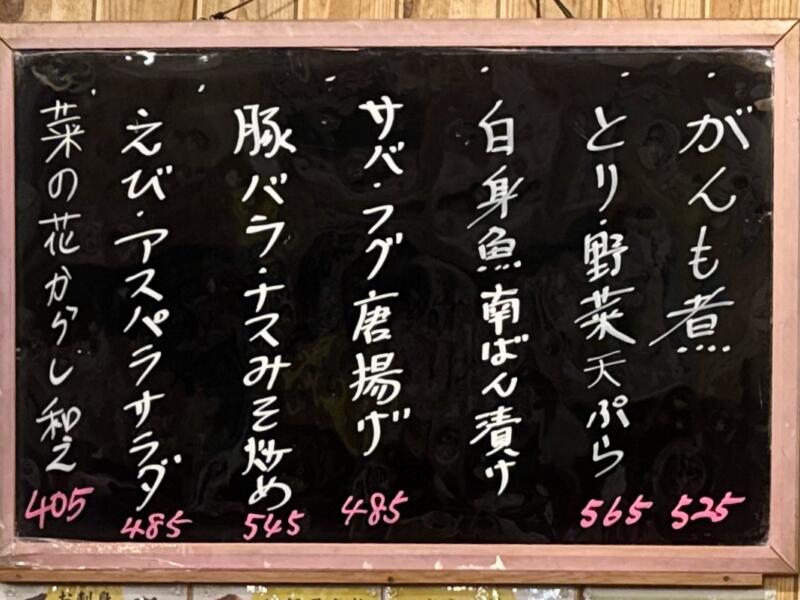 がんも煮
525
とり・野菜天ぷら
565
白身魚南ばん漬け
サバ・フグ唐揚げ
485
豚バラ・ナスみそ炒め
545
えび・アスパラサラダ
485
菜の花からし和え
405
お刺身